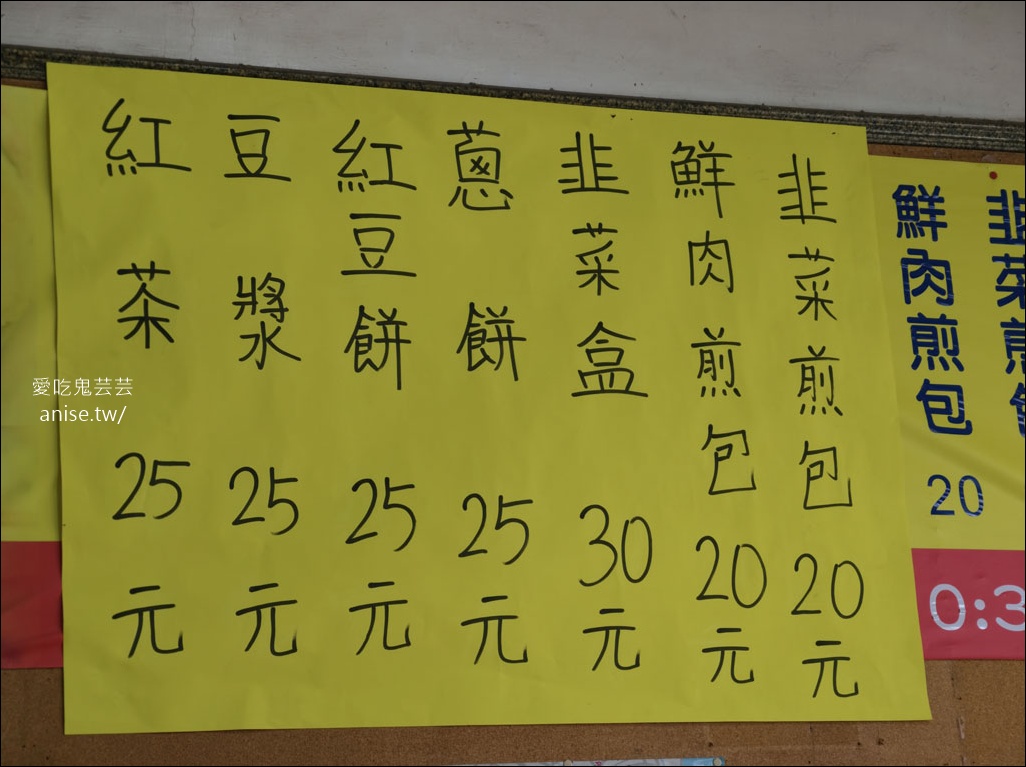 韭菜煎包 20元
鮮肉煎包 20元
韭菜盒 30元
蔥餅 25元
紅豆餅 25元
豆漿 25元
紅茶 25元
韭菜煎
鮮肉煎包 20
0:3
愛吃鬼芸芸
anise.tw/